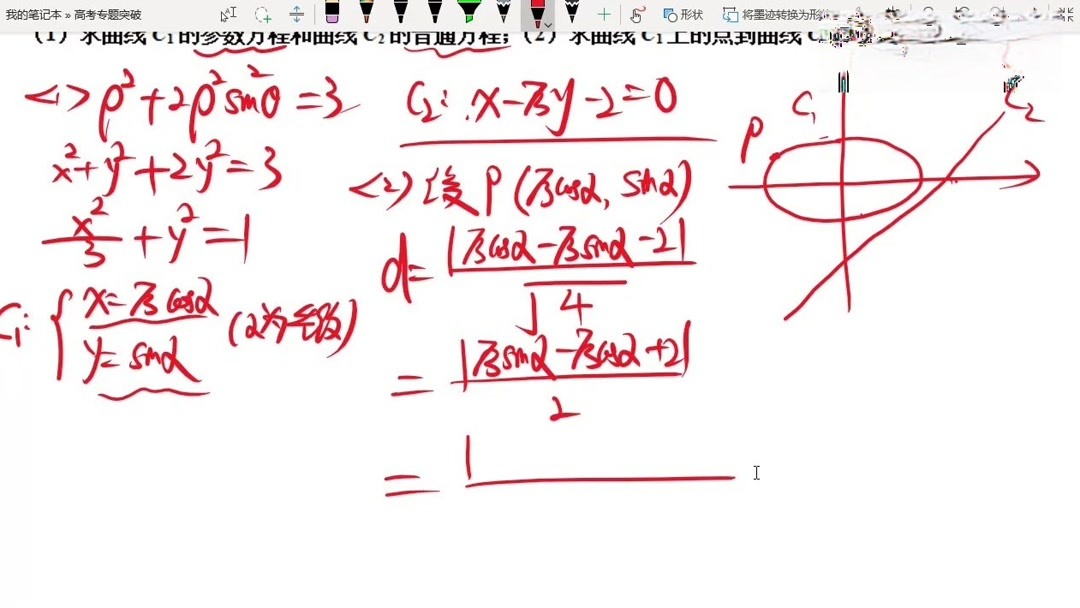 我的笔记本 » 高考专题突破
形状
将墨迹转换为形
(1) 求曲线 C₁ 的参数方程和曲线 C₂ 的普通方程；(2) 求曲线 C₁ 上的点到曲线
<1> ρ²+2ρ²sin²θ=3
x²+y²+2y²=3
x²/3+y²=1
C₁: { x=√3cosα
y=sinα (α为参数)
C₂: x-√3y-2=0
<2> 设 P(√3cosα, sinα)
d=|√3cosα-√3sinα-2|/√4
=|√3sinα-√3cosα+2|/2
=|
P
C₁
C₂